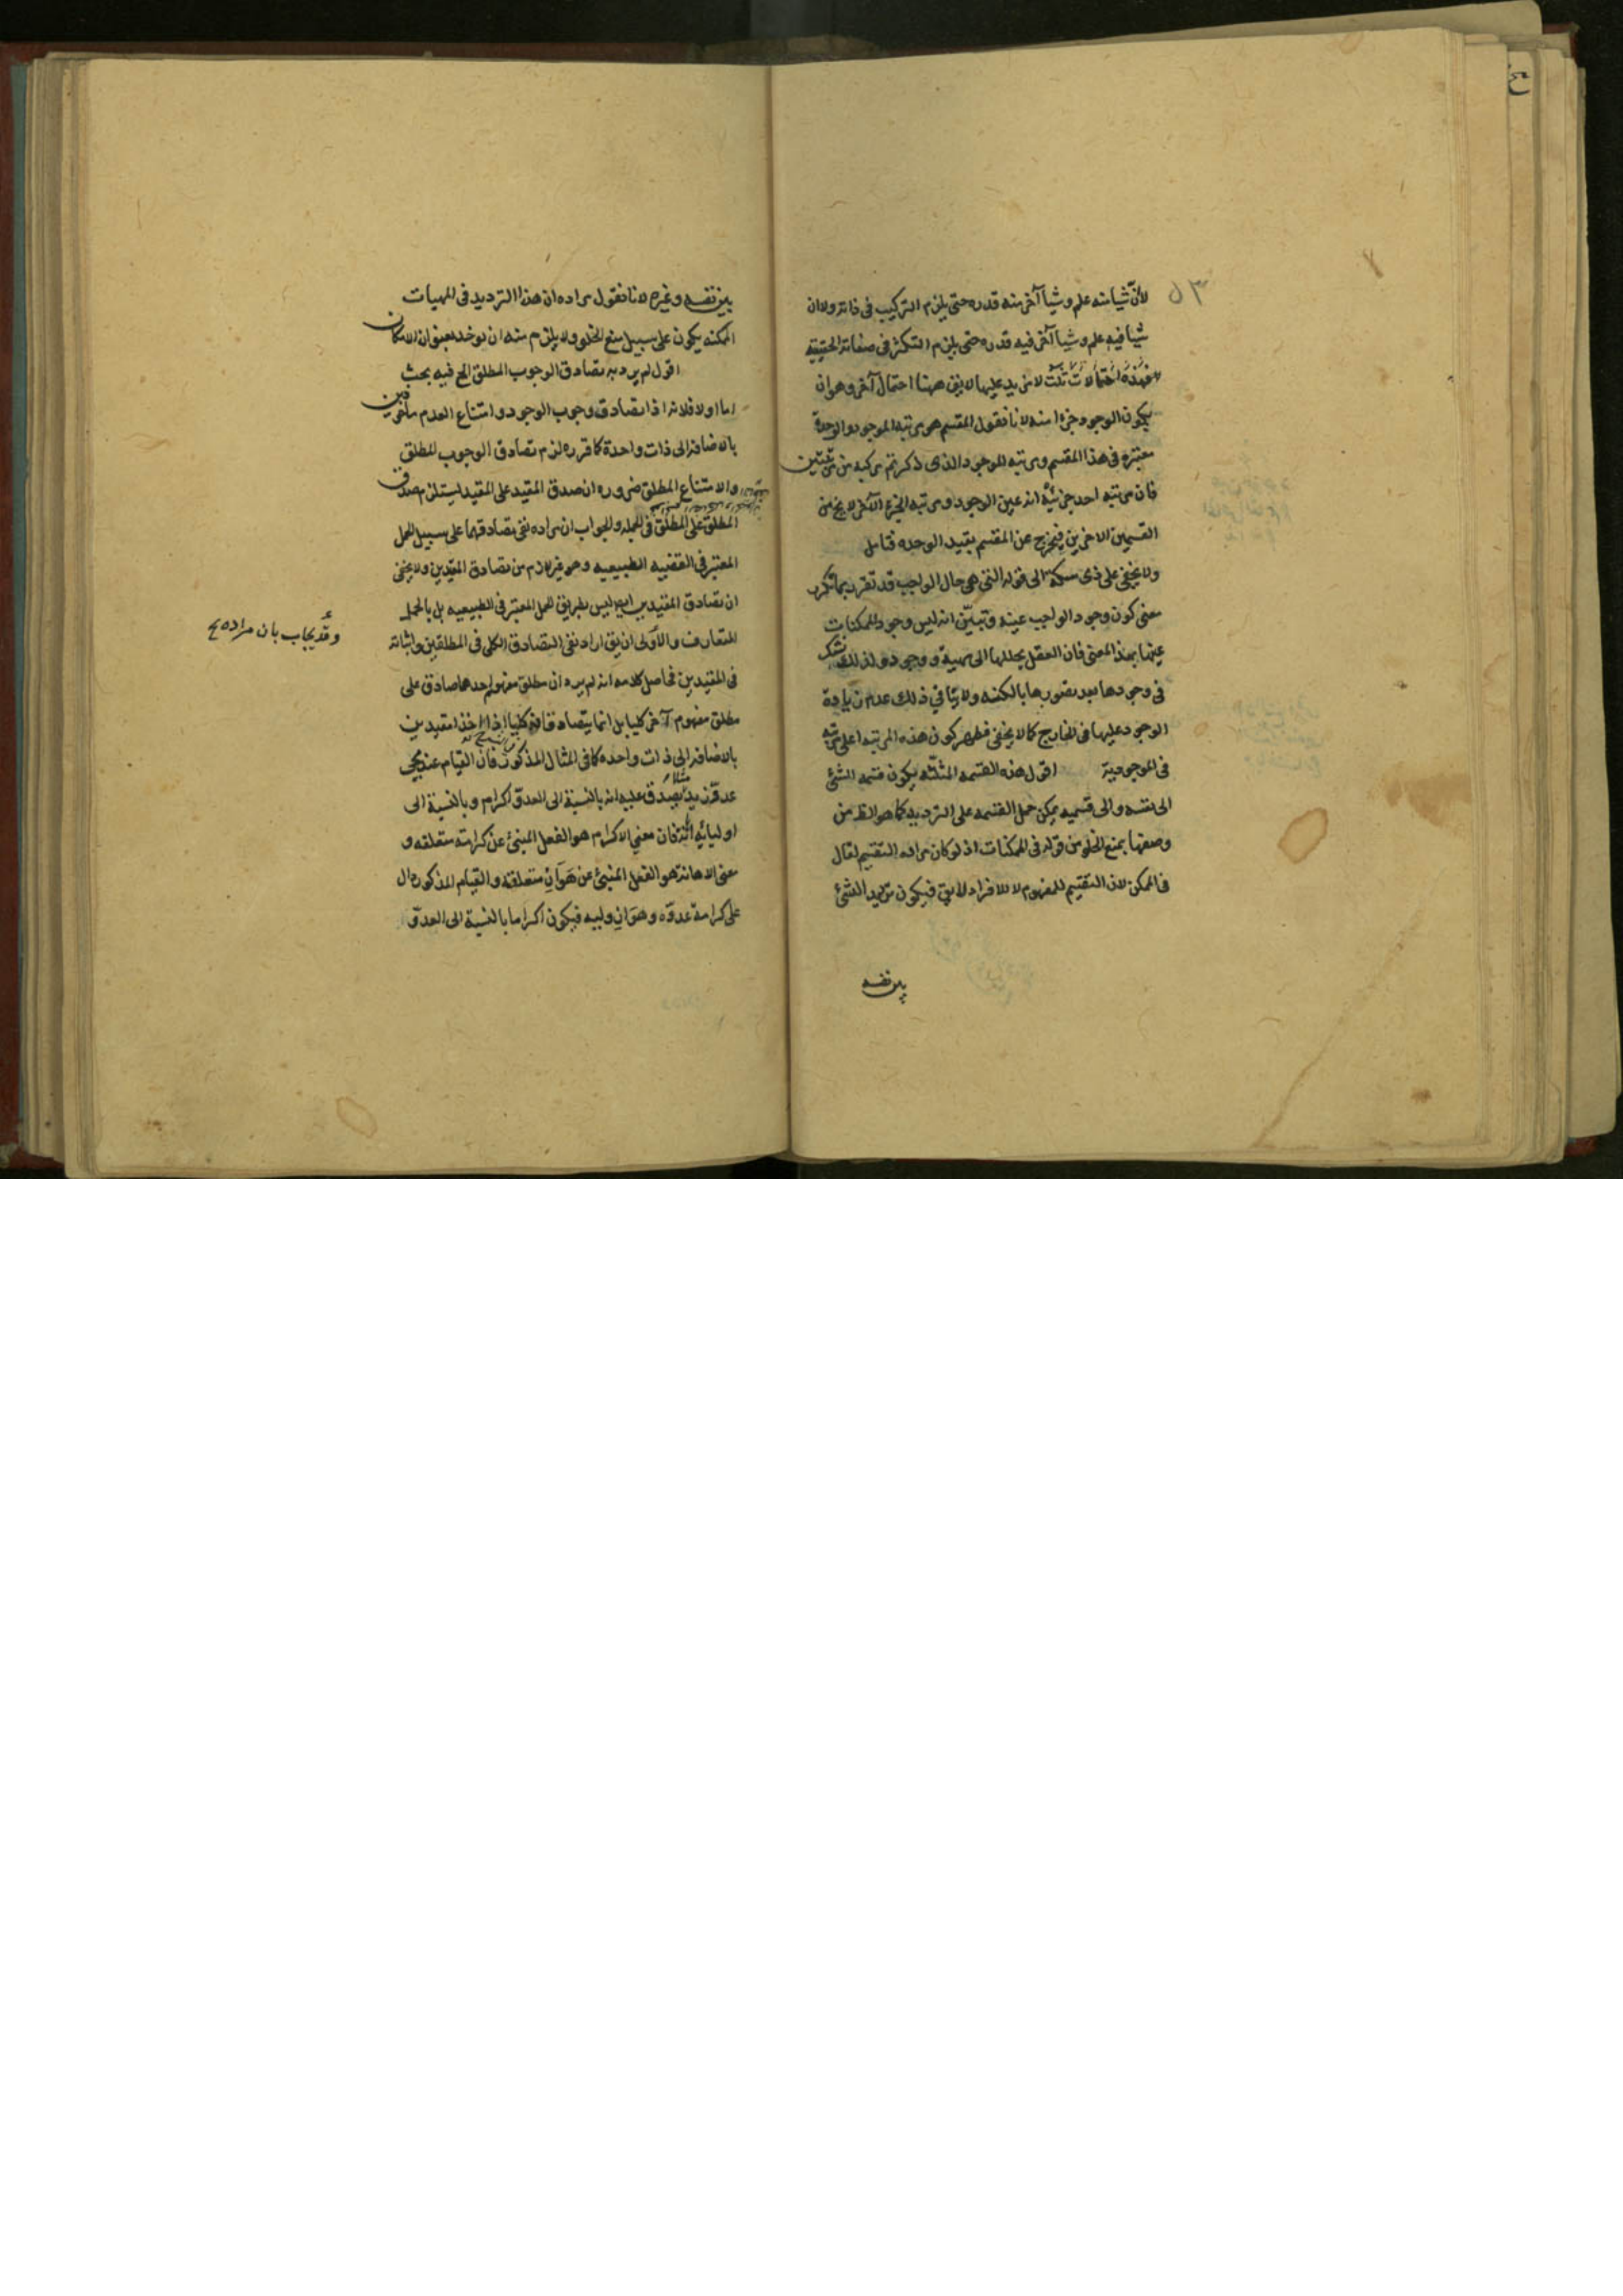 لأنّ شيئا منه علم وشيأ آخر منه قدره حتى يلزم التركيب فى ذاته ولا ان
شيأ فيه علم وشيأ آخر فيه قدره حتى يلزم التكثر فى صفاته الحقيقيه
فهذه احتمالات ثلث لا مزيد عليها لا يق ههنا احتمال آخر وهو ان
يكون الوجود جزءا منه لانا نقول المقسم هو مرتبه الموجود والوحدة
معتبره فى هذا المقسم ومرتبه الموجود الذى ذكرتم مركبه من مرتبتين
فان مرتبه احد جزئيه انه عين الوجود ومرتبه الجزء الآخر لا يخ من
القسمين الاخرين فيخرج عن المقسم بقيد الوحده فتامل
ولا يخفى على ذى مسكة الى قوله التى هى حال الواجب قد تقرر بما تكرر
معنى كون وجود الواجب عينه وتبيّن انه ليس وجود الممكنات
عينها بهذا المعنى فان العقل يحللها الى مهية ووجود ولذلك يشك
فى وجودها بعد تصورها بالكنه ولا ينافي ذلك عدم زيادة
الوجود عليها فى الخارج كما لا يخفى فظهر كون هذه المرتبه اعلى مرتبه
فى الموجودية اقول هذه القسمه المثلثه يكون قسمه الشئ
الى نفسه والى قسميه يمكن حمل القسمه على الترديد كما هو الظ من
وصفها بمنع الخلو من قوله فى الممكنات اذ لو كان مراده التقسيم لقال
فى الممكن لان التقسيم للمفهوم لا للافراد لا يق فيكون ترديد الشئ
بين نفسه
بين نفسه وغيره لانا نقول مراده ان هذا الترديد فى المهيات
الممكنه يكون على سبيل منع الخلو ولا يلزم منه ان يوخذ بعنوان الامكان
اقول لم يرد به تصادق الوجوب المطلق الخ فيه بحث
اما اولا فلانه اذا تصادق وجوب الوجود وامتناع العدم ماخوذين
بالاضافه الى ذات واحدة كما قرره لزم تصادق الوجوب المطلق
والامتناع المطلق ضروره ان صدق المقيد على المقيد ليستلزم صدق
المطلق على المطلق فى الجمله والجواب ان مراده نفى تصادقهما على سبيل الحمل
المعتبر فى القضيه الطبيعيه وهو غير لازم من تصادق المقيدين ولا يخفى
ان تصادق المقيدين ايض ليس بطريق الحمل المعتبر فى الطبيعيه بل بالحمل
المتعارف والأولى ان يق اراد نفى التصادق الكلى فى المطلقين واثباته
فى المقيدين فحاصل كلامه انه لم يرد ان مطلق مفهوم احدهما صادق على
مطلق مفهوم آخر كليا بل انما يتصادقان كليا اذا اخذا مقيدين
بالاضافه الى ذات واحده كما فى المثال المذكور فان القيام عند مجى
عدوّ زيد مثلا يصدق عليه انه بالنسبة الى العدوّ اكرام وبالنسبة الى
اوليائه فان معنى الاكرام هو الفعل المنبئ عن كرامته متعلقه و
معنى الاهانه هو الفعل المنبئ عن هوان متعلقه والقيام المذكور دال
على كرامة عدوّه وهوان وليه فيكون اكراما بالنسبة الى العدوّ
وقد يجاب بان مراده